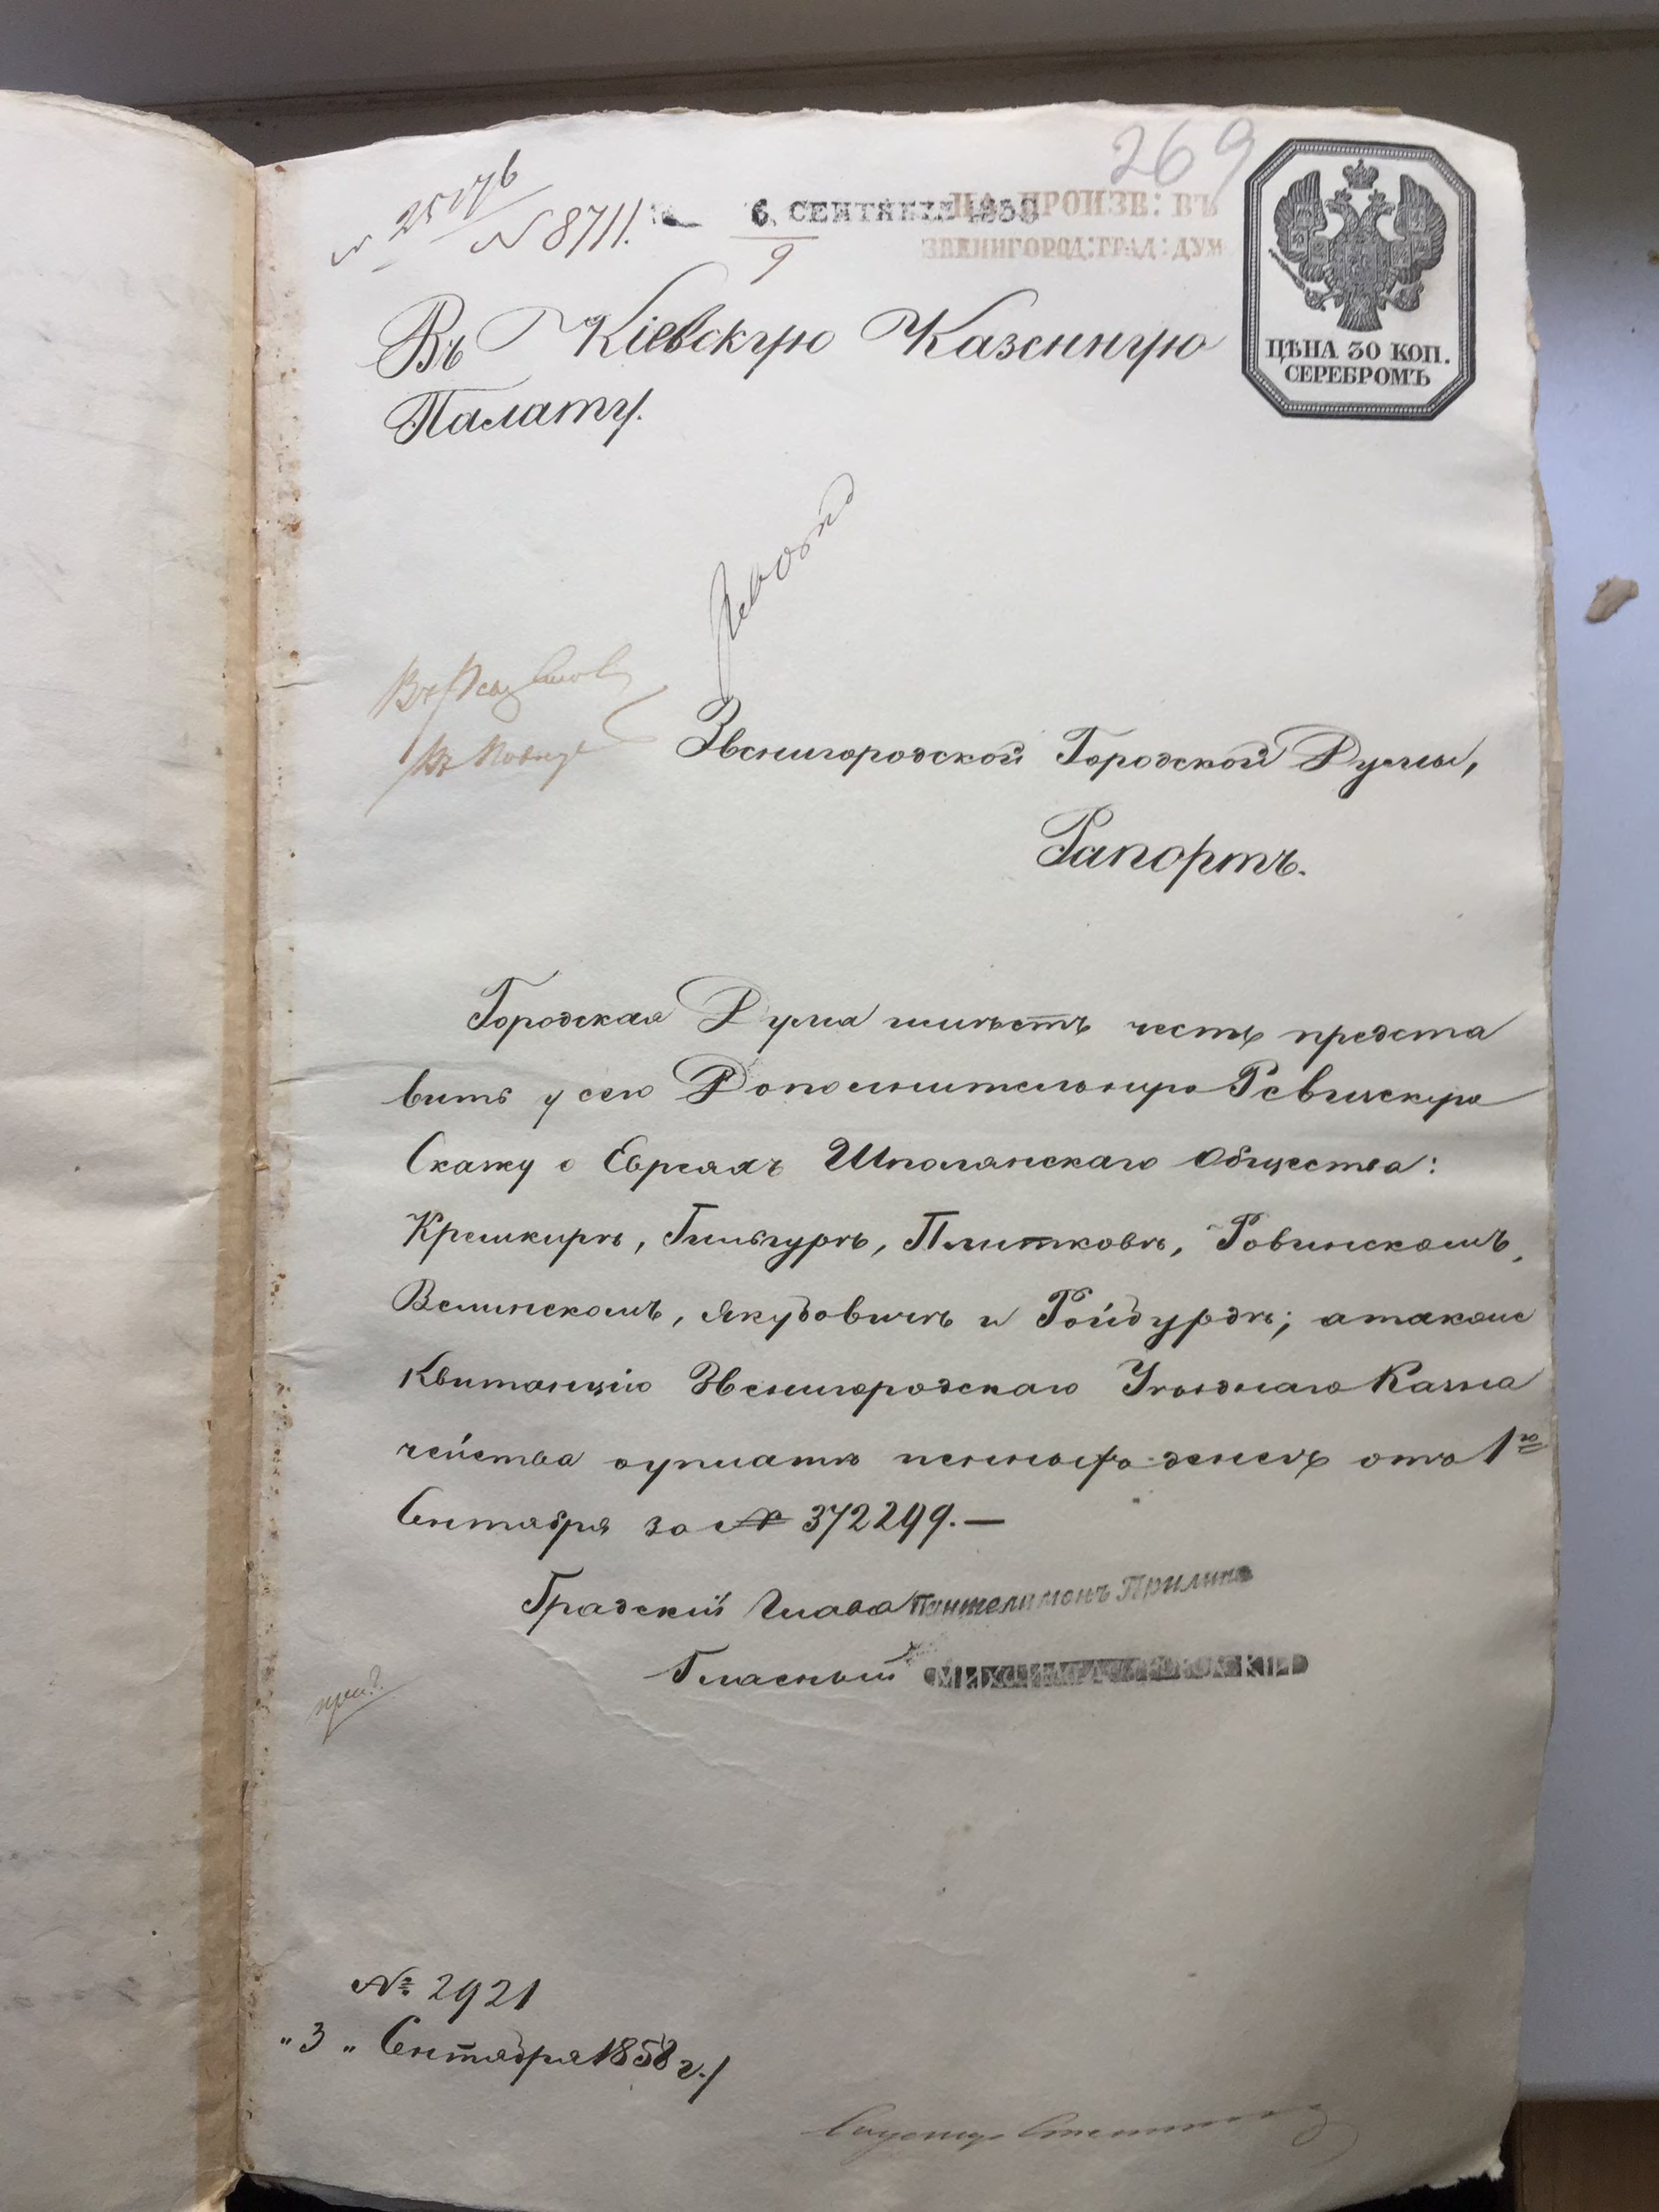 269
№ 8711.
6 СЕНТЯБРЯ 1858
9
НА ПРОИЗВ: ВЪ
ЗВЕНИГОРОД: ГРАД: ДУМ
ЦѢНА 30 КОП.
СЕРЕБРОМЪ
Въ Кіевскую Казенную
Палату.
Звенигородской Городской Думы,
Рапортъ.
Городская Дума имѣетъ честь предста
вить у сего Дополнительную Ревизскую
Скаску о Евреяхъ Шполянскаго общества:
Кремкирѣ, Гимгурѣ, Плитковѣ, Ровинскомъ,
Велинскомъ, Якубовичѣ и Ройбурдѣ; а также
Квитанцію Звенигородскаго Уѣзднаго Казна
чейства о уплатѣ пенныхъ денегъ отъ 1го
Сентября за № 372299.—
Градскій Глава Пантелимонъ Прилипа
Гласный
№ 2921
"3" Сентября 1858 г.